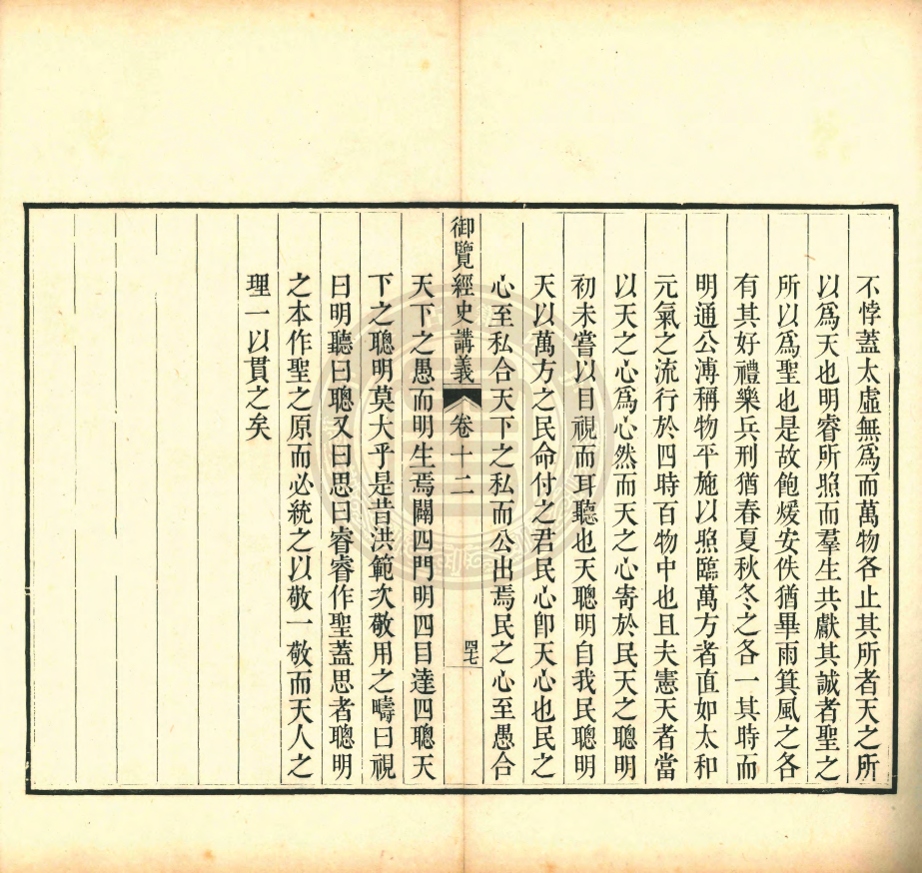 不悖蓋太虛無爲而萬物各止其所者天之所
以爲天也明睿所照而羣生共獻其誠者聖之
所以爲聖也是故飽煖安佚猶畢雨箕風之各
有其好禮樂兵刑猶春夏秋冬之各一其時而
明通公溥稱物平施以照臨萬方者直如太和
元氣之流行於四時百物中也且夫憲天者當
以天之心爲心然而天之心寄於民天之聰明
初未嘗以目視而耳聽也天聰明自我民聰明
天以萬方之民命付之君民心卽天心也民之
心至私合天下之私而公出焉民之心至愚合
御覽經史講義 卷十二 四七
天下之愚而明生焉闢四門明四目達四聰天
下之聰明莫大乎是昔洪範次敬用之疇曰視
曰明聽曰聰又曰思曰睿睿作聖蓋思者聰明
之本作聖之原而必統之以敬一敬而天人之
理一以貫之矣